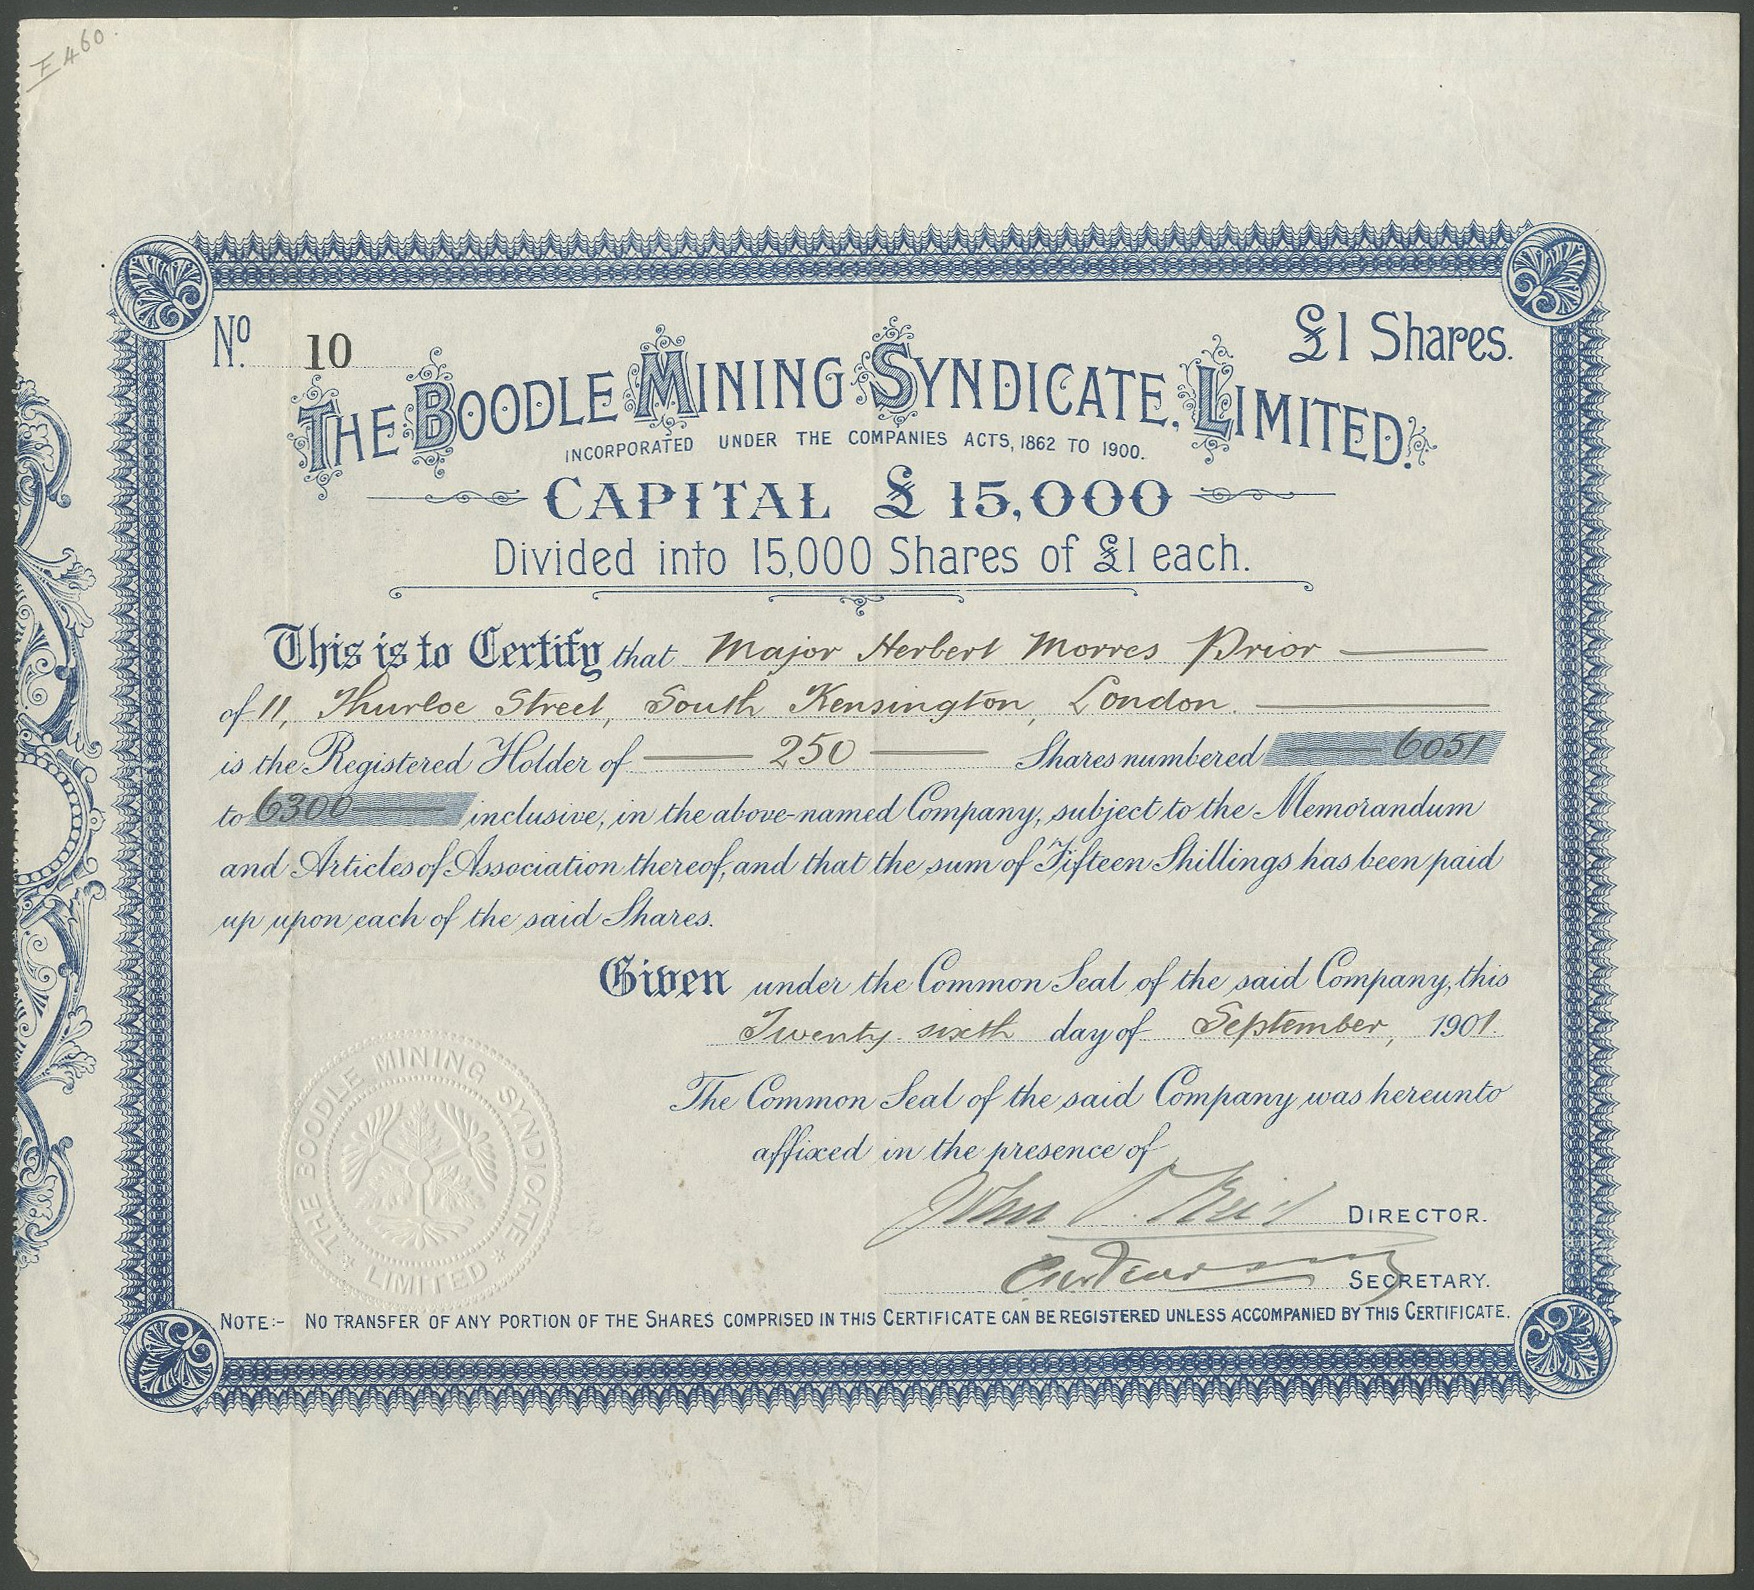 F 460.
No. 10
£1 Shares.
THE BOODLE MINING SYNDICATE, LIMITED.
INCORPORATED UNDER THE COMPANIES ACTS, 1862 TO 1900.
CAPITAL £15,000
Divided into 15,000 Shares of £1 each.
This is to Certify that Major Herbert Morres Prior
of 11, Thurloe Street, South Kensington, London.
is the Registered Holder of 250 Shares numbered 6051
to 6300 inclusive, in the above-named Company, subject to the Memorandum
and Articles of Association thereof, and that the sum of Fifteen Shillings has been paid
up upon each of the said Shares.
Given under the Common Seal of the said Company, this
Twenty sixth day of September, 1901.
The Common Seal of the said Company was hereunto
affixed in the presence of
John Reid DIRECTOR.
SECRETARY.
THE BOODLE MINING SYNDICATE
* LIMITED *
NOTE:- NO TRANSFER OF ANY PORTION OF THE SHARES COMPRISED IN THIS CERTIFICATE CAN BE REGISTERED UNLESS ACCOMPANIED BY THIS CERTIFICATE.